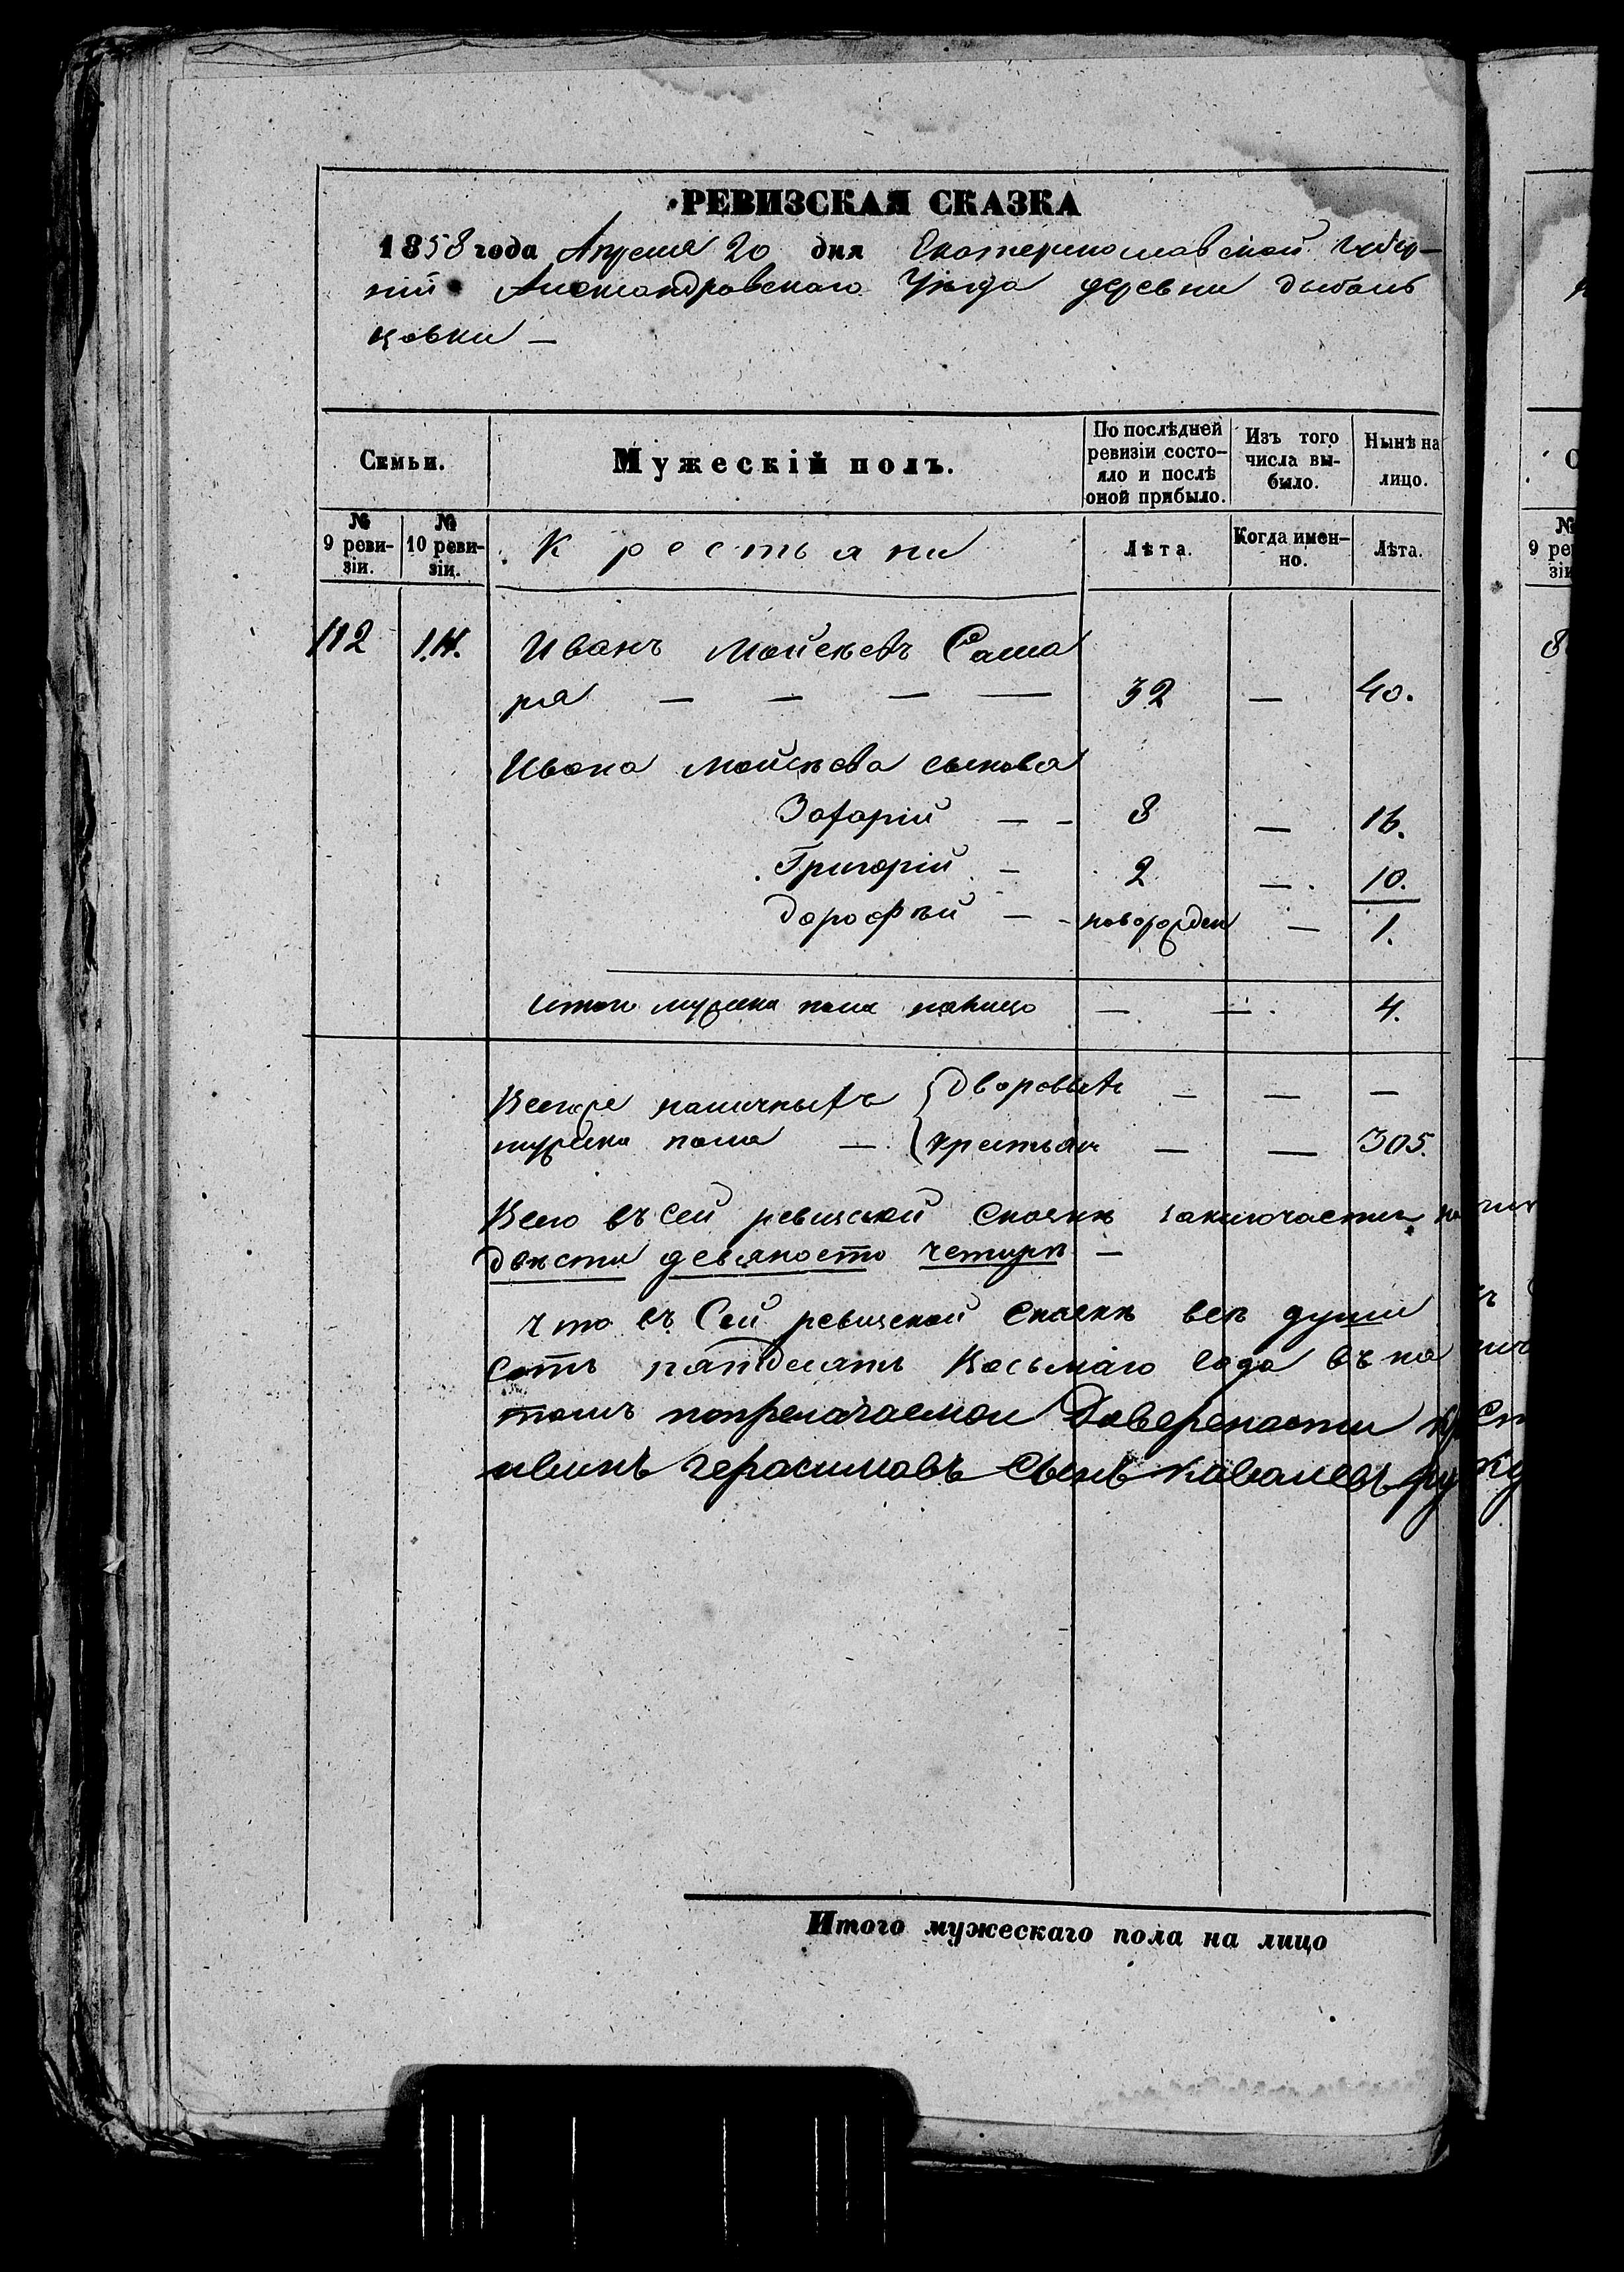 РЕВИЗСКАЯ СКАЗКА
1858 года Апреля 20 дня Екатеринославской губер-
ніи Александровскаго Уѣзда деревни
ковки —
Семьи.
Мужескій полъ.
По послѣдней ревизіи состо-яло и послѣ оной прибыло.
Изъ того числа вы-было.
Нынѣ на лицо.
№ 9 реви-зіи.
№ 10 реви-зіи.
Крестьяни
Лѣта.
Когда имен-но.
Лѣта.
112 Иванъ Мойсѣевъ Сама
ра — — — — 32 — 40.
Ивана Мойсѣева сыновья
Захарій — - 8 — 16.
Григорій - 2 — 10.
Дорофѣй — - новорожден — 1.
Итого мужска пола налицо — — 4.
Всегоже наличныхъ { дворовыхъ - — —
мужска пола — { крестьян — — 305.
Всего въ сей ревизской сказкѣ заключается
двѣсти девяносто четыри —
Что въ Сей ревизской сказкѣ всѣ души
сотъ пятдесятъ Восьмаго года въ
томъ поприлагаемои Доверености
герасимовъ Сынъ ковалевъ
№
9 ре
зі
8
Итого мужескаго пола на лицо